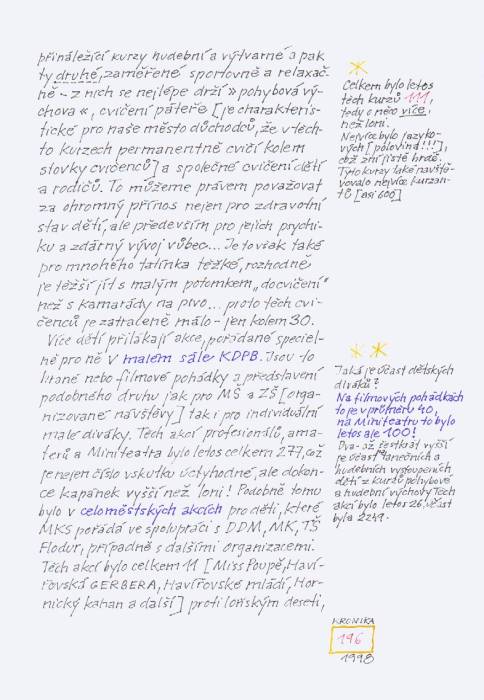 přináležící kurzy hudební a výtvarné a pak
ty druhé, zaměřené sportovně a relaxač-
ně - z nich se nejlépe drží » pohybová vý-
chova «, cvičení páteře [je charakteris-
tické pro naše město důchodců, že v těch-
to kurzech permanentně cvičí kolem
stovky cvičenců] a společné cvičení dětí
a rodičů. To můžeme právem považovat
za ohromný přínos nejen pro zdravotní
stav dětí, ale především pro jejich psychi-
ku a zdárný vývoj vůbec... Je to však také
pro mnohého tatínka těžké, rozhodně
je těžší jít s malým potomkem „do cvičení"
než s kamarády na pivo... proto těch cvi-
čenců je zatraceně málo - jen kolem 30.
Více dětí přilákají akce, pořádané speciel-
ně pro ně v malém sále KDPB. Jsou to
hrané nebo filmové pohádky a představení
podobného druhu jak pro MŠ a ZŠ [orga-
nizované návštěvy] tak i pro individuální
malé diváky. Těch akcí profesionálů, ama-
térů a Miniteatra bylo letos celkem 277, což
je nejen číslo vskutku úctyhodné, ale dokon-
ce kapánek vyšší než loni! Podobně tomu
bylo v celoměstských akcích pro děti, které
MKS pořádá ve spolupráci s DDM, MK, TŠ
Flodur, případně s dalšími organizacemi.
Těch akcí bylo celkem 11 [Miss Poupě, Haví-
řovská GERBERA, Havířovské mládí, Hor-
nický kahan a další] proti loňským deseti,
Celkem bylo letos
těch kurzů 111,
tedy o něco více,
než loni.
Nejvíce bylo jazyko-
vých [polovina!!!],
což zní jistě hrdě.
Tyto kurzy také navště-
vovalo nejvíce kurzan-
tů [asi 600]
Jaká je účast dětských
diváků?
Na filmových pohádkách
to je v průměru 40,
na Miniteatru to bylo
letos ale 100!
Dva- až šestkrát vyšší
je účast tanečních a
hudebních vystoupeních
dětí z kurzů pohybové
a hudební výchovy. Těch
akcí bylo letos 26, účast
byla 2249.
KRONIKA
196
1998